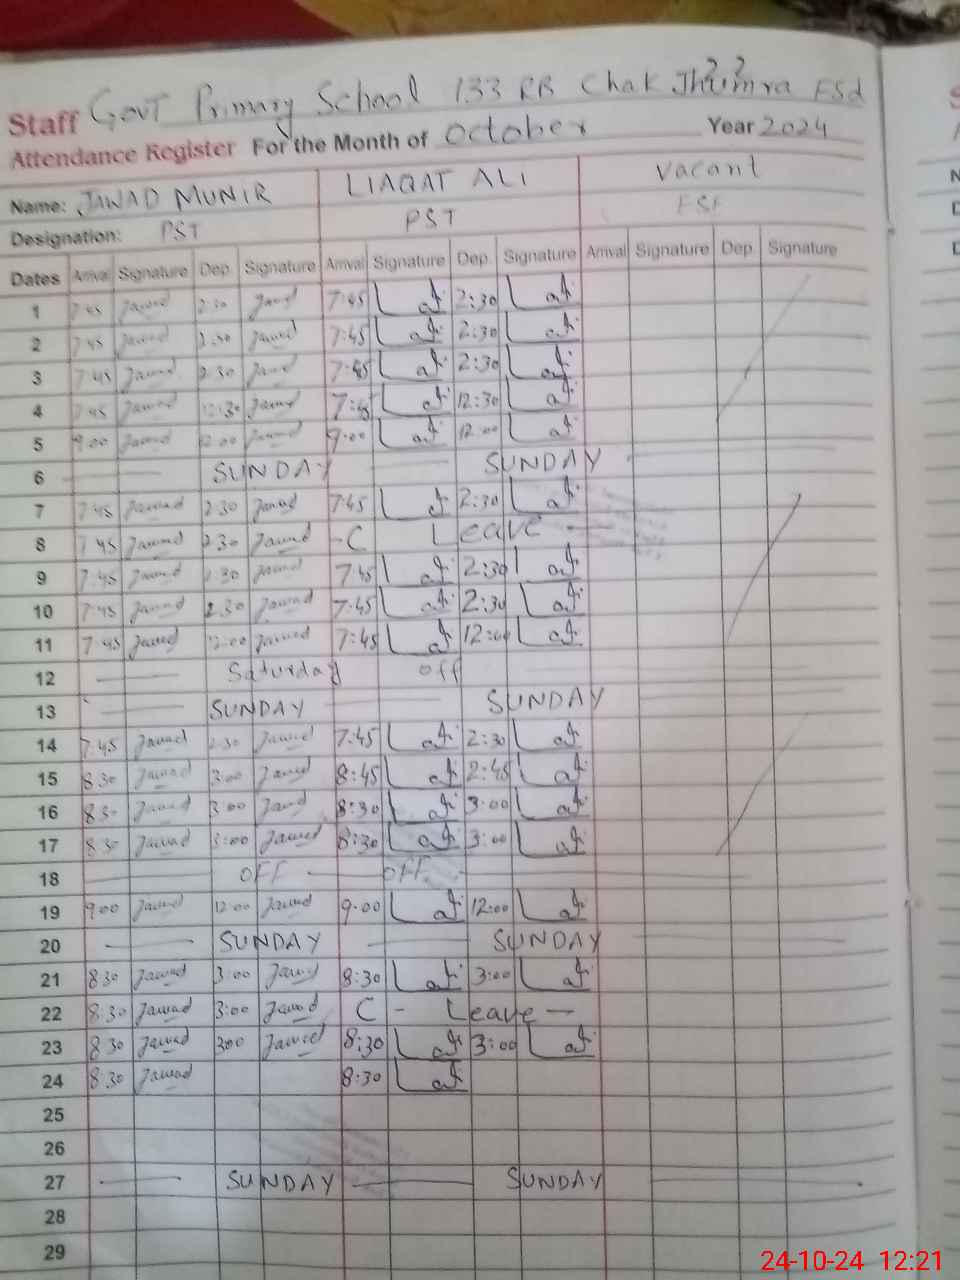 Staff Govt Primary School 133 RB Chak Jhumra FSd
Attendance Register For the Month of October Year 2024
Name: JAWAD MUNIR LIAQAT ALI Vacant
Designation: PST PST
Dates Arrival Signature Dep. Signature Arrival Signature Dep. Signature Arrival Signature Dep. Signature
1 7:45 Jawad 2:30 Jawad 7:45 2:30
2 7:45 Jawad 2:30 Jawad 7:45 2:30
3 7:45 Jawad 2:30 Jawad 7:45 2:30
4 7:45 Jawad 12:30 Jawad 7:45 12:30
5 9:00 Jawad 12:00 Jawad 9:00 12:00
6 SUNDAY SUNDAY
7 7:45 Jawad 2:30 Jawad 7:45 2:30
8 7:45 Jawad 2:30 Jawad - C Leave -
9 7:45 Jawad 2:30 Jawad 7:45 2:30
10 7:45 Jawad 2:30 Jawad 7:45 2:30
11 7:45 Jawad 12:00 Jawad 7:45 12:00
12 Saturday off
13 SUNDAY SUNDAY
14 7:45 Jawad 2:30 Jawad 7:45 2:30
15 8:30 Jawad 3:00 Jawad 8:45 2:45
16 8:30 Jawad 3:00 Jawad 8:30 3:00
17 8:30 Jawad 3:00 Jawad 8:30 3:00
18 OFF OFF
19 9:00 Jawad 12:00 Jawad 9:00 12:00
20 SUNDAY SUNDAY
21 8:30 Jawad 3:00 Jawad 8:30 3:00
22 8:30 Jawad 3:00 Jawad C - Leave -
23 8:30 Jawad 3:00 Jawad 8:30 3:00
24 8:30 Jawad 8:30
25
26
27 SUNDAY SUNDAY
28
29
24-10-24 12:21